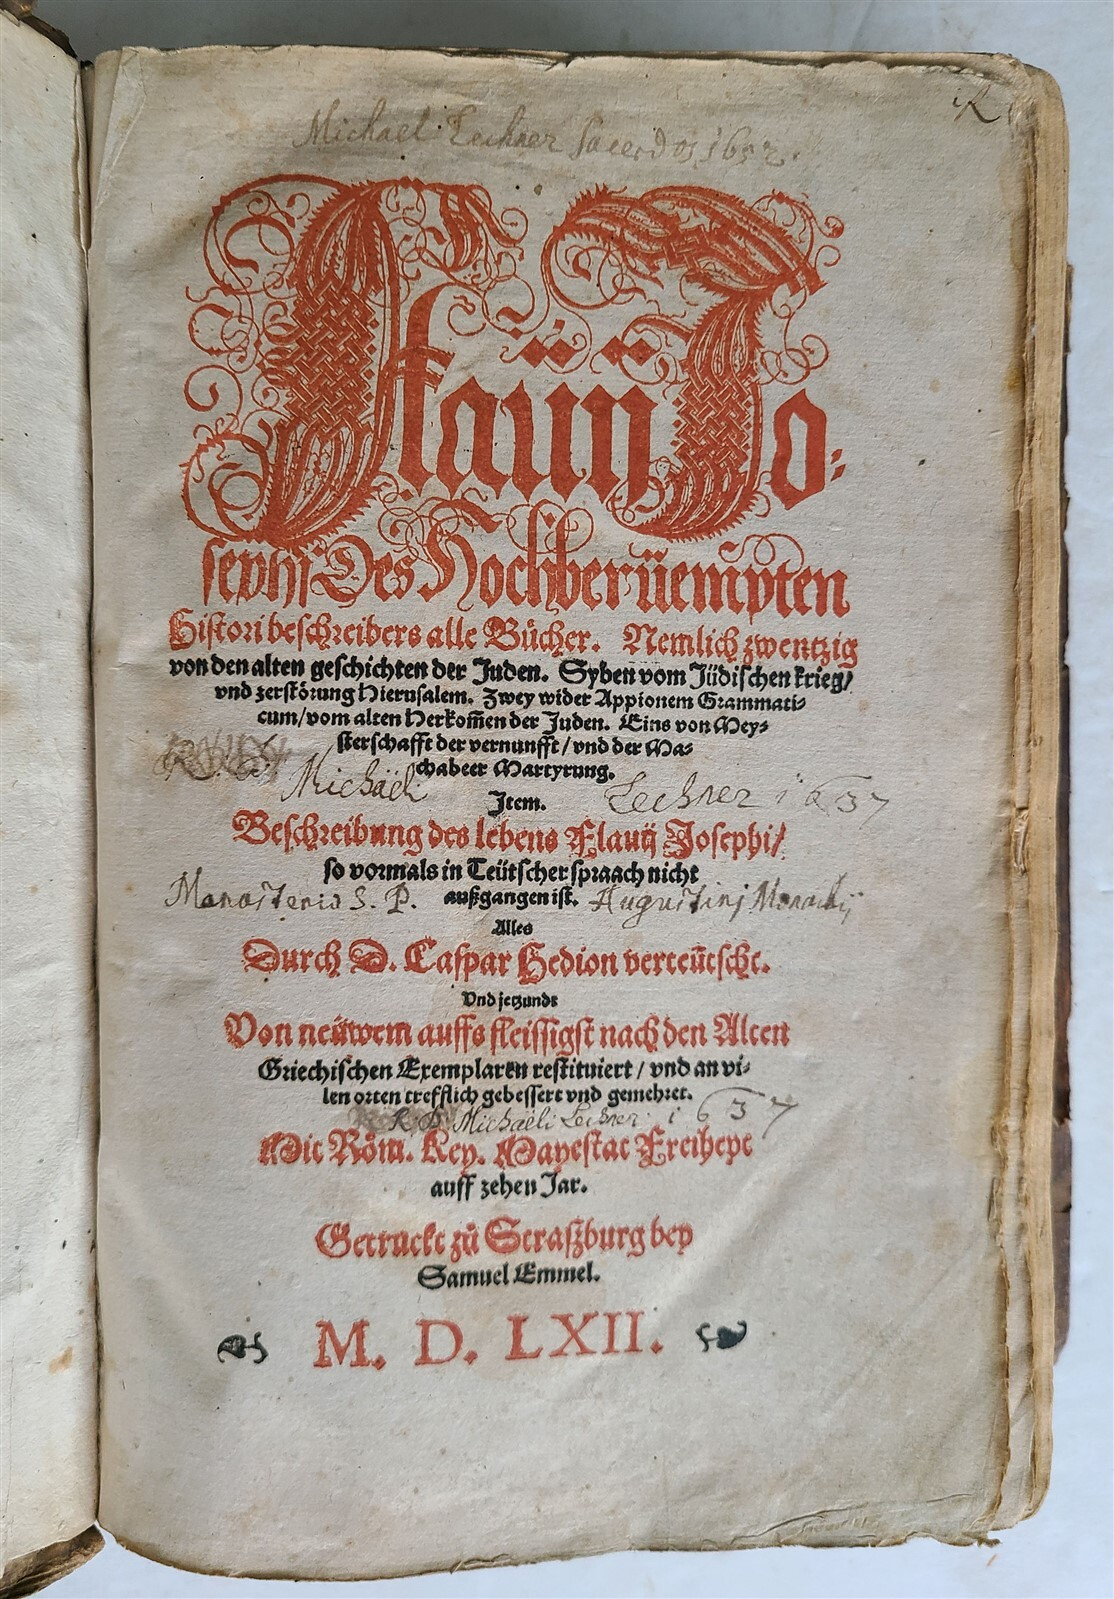 Michael Lechner Sacerdos 1652.
Flavij Jo-
sephi Des Hochberüempten
Histori beschreibers alle Bücher. Nemlich zwentzig
von den alten geschichten der Juden. Syben vom Jüdischen krieg/
vnd zerstörung Hierusalem. Zwey wider Appionem Grammati-
cum/vom alten Herkom̃en der Juden. Eins von Mey-
sterschafft der vernunfft/vnd der Ma-
chabeer Martyrung.
Michaëli Lechner 1637
Item.
Beschreibung des lebens Flauij Josephi/
so vormals in Teütscher spraach nicht
außgangen ist.
Monasterio S. P. Augustini Monachij
Alles
Durch D. Caspar Hedion verteütscht.
Vnd jetzundt
Von neüwem auffs fleissigst nach den Alten
Griechischen Exemplaren restituiert/vnd an vi-
len orten trefflich gebessert vnd gemehret.
R. P. Michaëli Lechner 1637
Mit Röm. Key. Mayestat Freiheyt
auff zehen Jar.
Getruckt zů Straßburg bey
Samuel Emmel.
M. D. LXII.